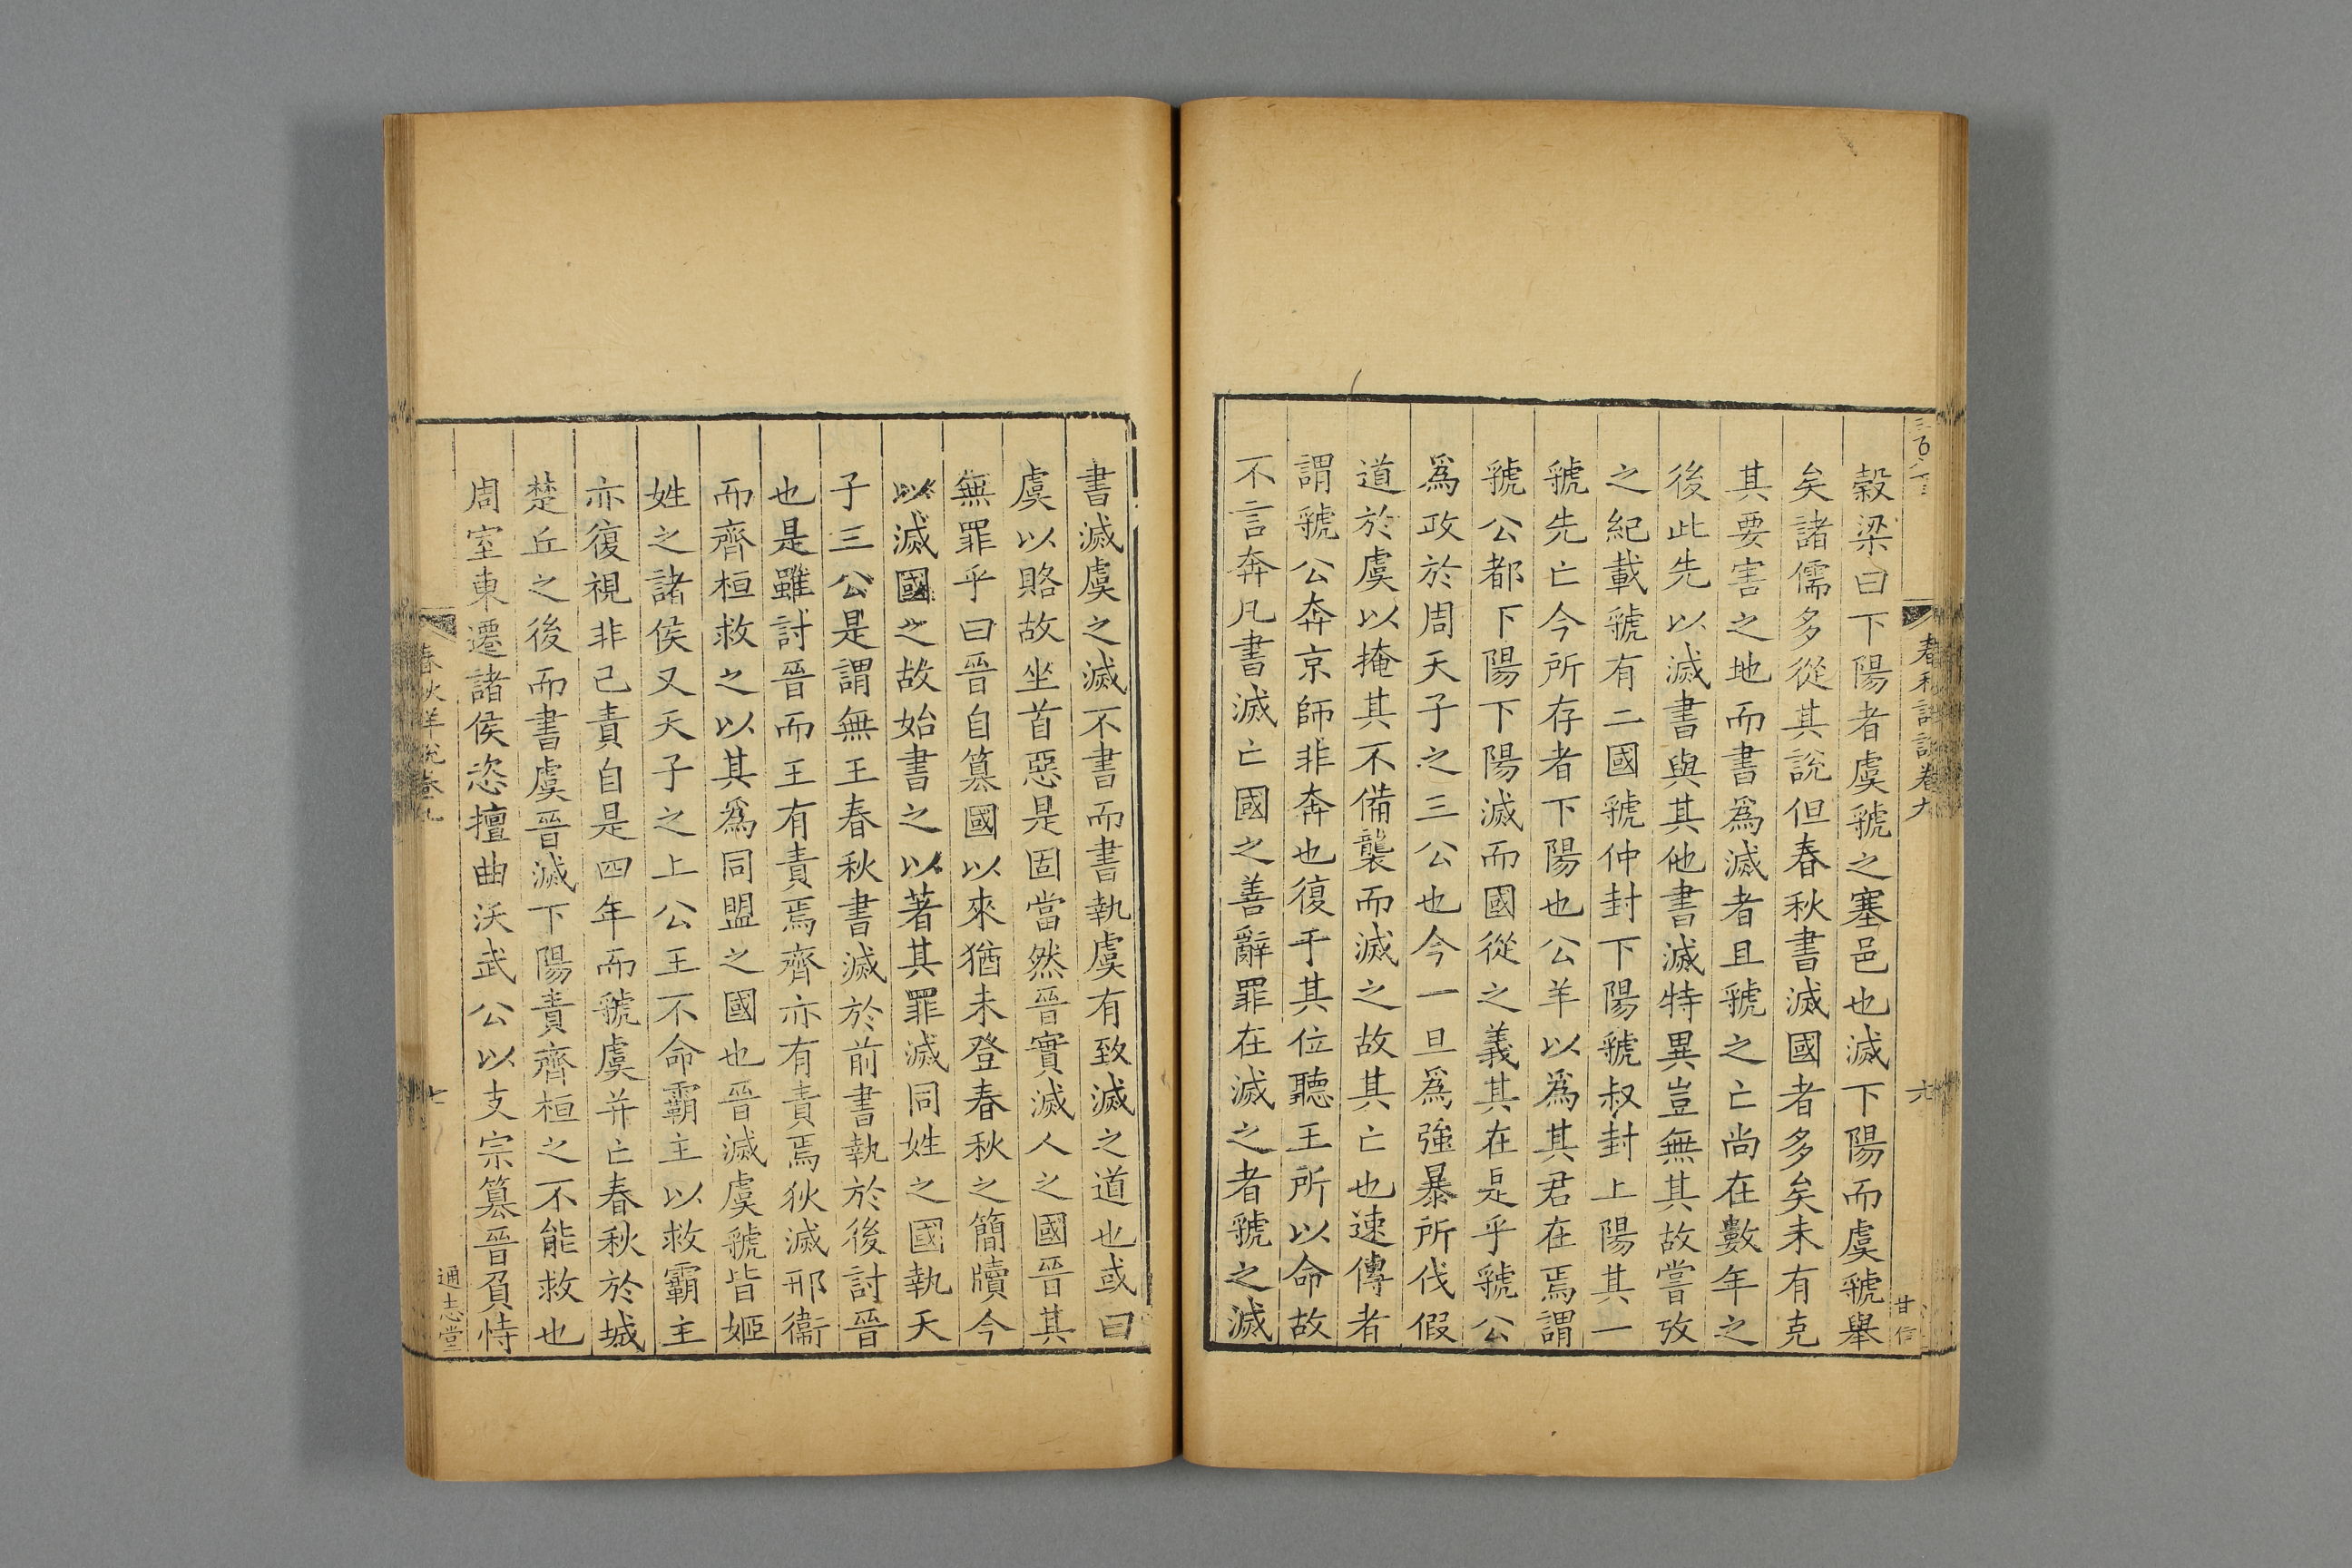 穀梁曰下陽者虞虢之塞邑也滅下陽而虞虢舉
矣諸儒多從其說但春秋書滅國者多矣未有克
其要害之地而書爲滅者且虢之亡尚在數年之
後此先以滅書與其他書滅特異豈無其故嘗攷
之紀載虢有二國虢仲封下陽虢叔封上陽其一
虢先亡今所存者下陽也公羊以爲其君在焉謂
虢公都下陽下陽滅而國從之義其在是乎虢公
爲政於周天子之三公也今一旦爲強暴所伐假
道於虞以掩其不備襲而滅之故其亡也速傳者
謂虢公奔京師非奔也復于其位聽王所以命故
不言奔凡書滅亡國之善辭罪在滅之者虢之滅
春秋詳說卷九
六
甘信
書滅虞之滅不書而書執虞有致滅之道也或曰
虞以賂故坐首惡是固當然晉實滅人之國晉其
無罪乎曰晉自篡國以來猶未登春秋之簡牘今
以滅國之故始書之以著其罪滅同姓之國執天
子三公是謂無王春秋書滅於前書執於後討晉
也是雖討晉而王有責焉齊亦有責焉狄滅邢衞
而齊桓救之以其爲同盟之國也晉滅虞虢皆姬
姓之諸侯又天子之上公王不命霸主以救霸主
亦復視非己責自是四年而虢虞并亡春秋於城
楚丘之後而書虞晉滅下陽責齊桓之不能救也
周室東遷諸侯恣擅曲沃武公以支宗篡晉負恃
春秋詳說卷九
七
通志堂